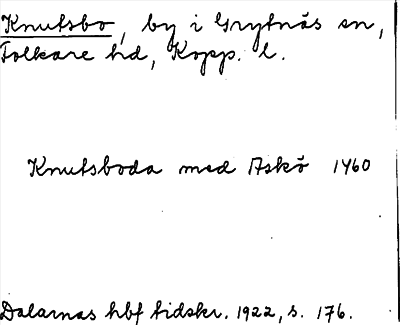 Knutsbo, by i Grytnäs sn,
Folkare hd, Kopp. l.
Knutsboda med Askö 1460
Dalarnas hbf tidskr. 1922, s. 176.